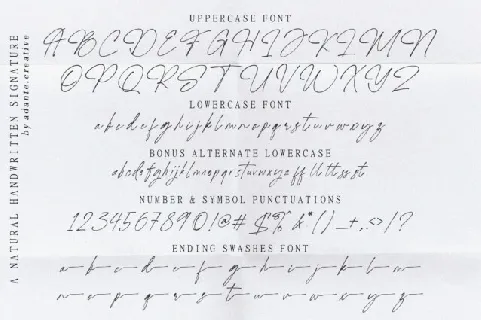 A NATURAL HANDWRITTEN SIGNATURE
by adante.creative
UPPERCASE FONT
ABCDEFGHIJKLMN
OPQRSTUVWXYZ
LOWERCASE FONT
abcdefghijklmnopqrstuvwxyz
BONUS ALTERNATE LOWERCASE
abcdefghijklmnopqrstuvwxyz ff ll tt ss st
NUMBER & SYMBOL PUNCTUATIONS
1234567890!@# $% &*() _+,<>/?
ENDING SWASHES FONT
a b c d e f g h i j k l m
n o p q r s t u v w x y z